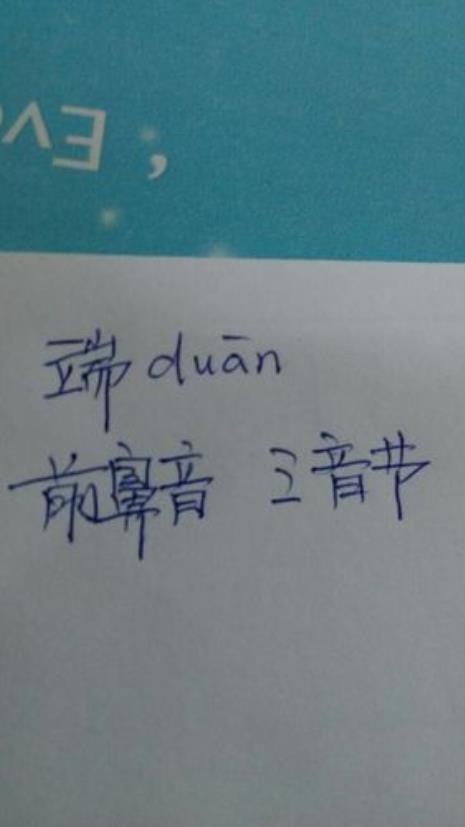 Eve
,
端 duān
前鼻音 三音节